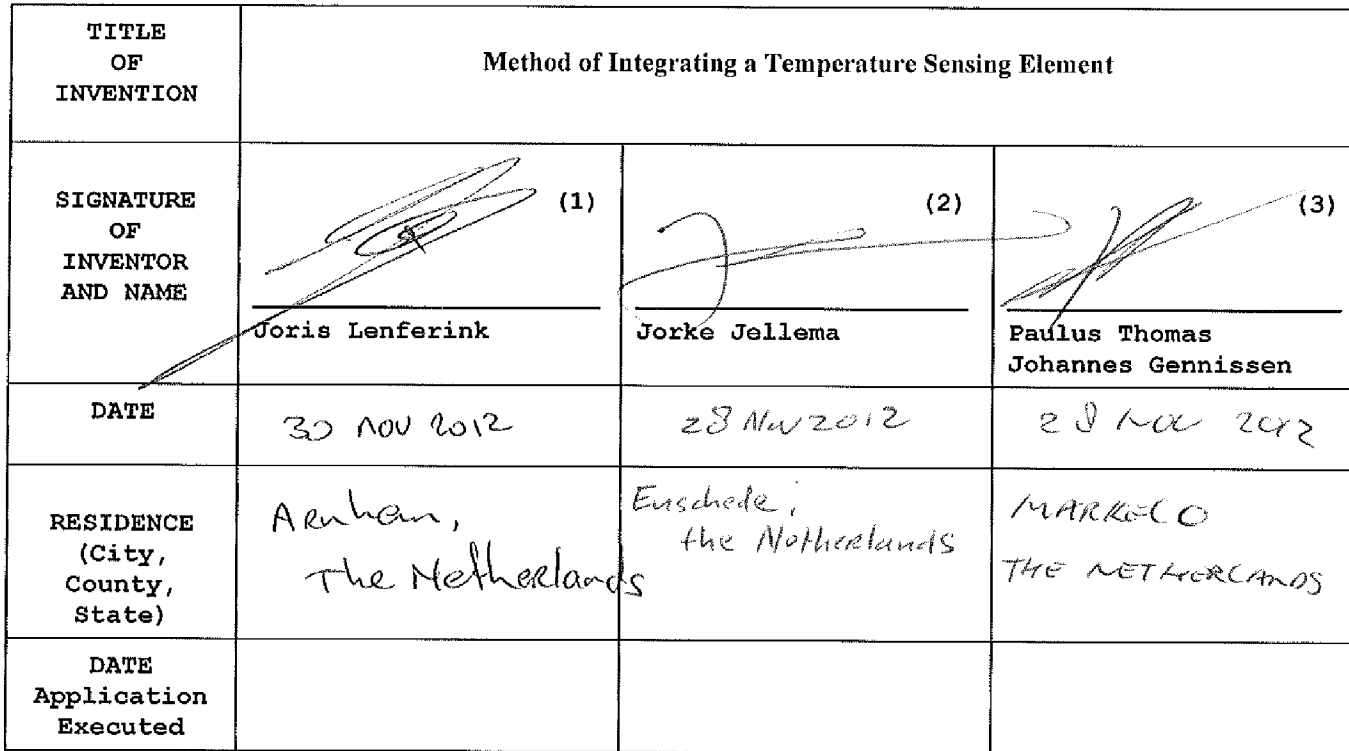 TITLE
OF
INVENTION
Method of Integrating a Temperature Sensing Element
SIGNATURE
OF
INVENTOR
AND NAME
(1)
Joris Lenferink
(2)
Jorke Jellema
(3)
Paulus Thomas
Johannes Gennissen
DATE
30 NOV 2012
28 Nov 2012
28 NOV 2012
RESIDENCE
(City,
County,
State)
Arnhem,
The Netherlands
Enschede,
the Netherlands
MARKELO
THE NETHERLANDS
DATE
Application
Executed